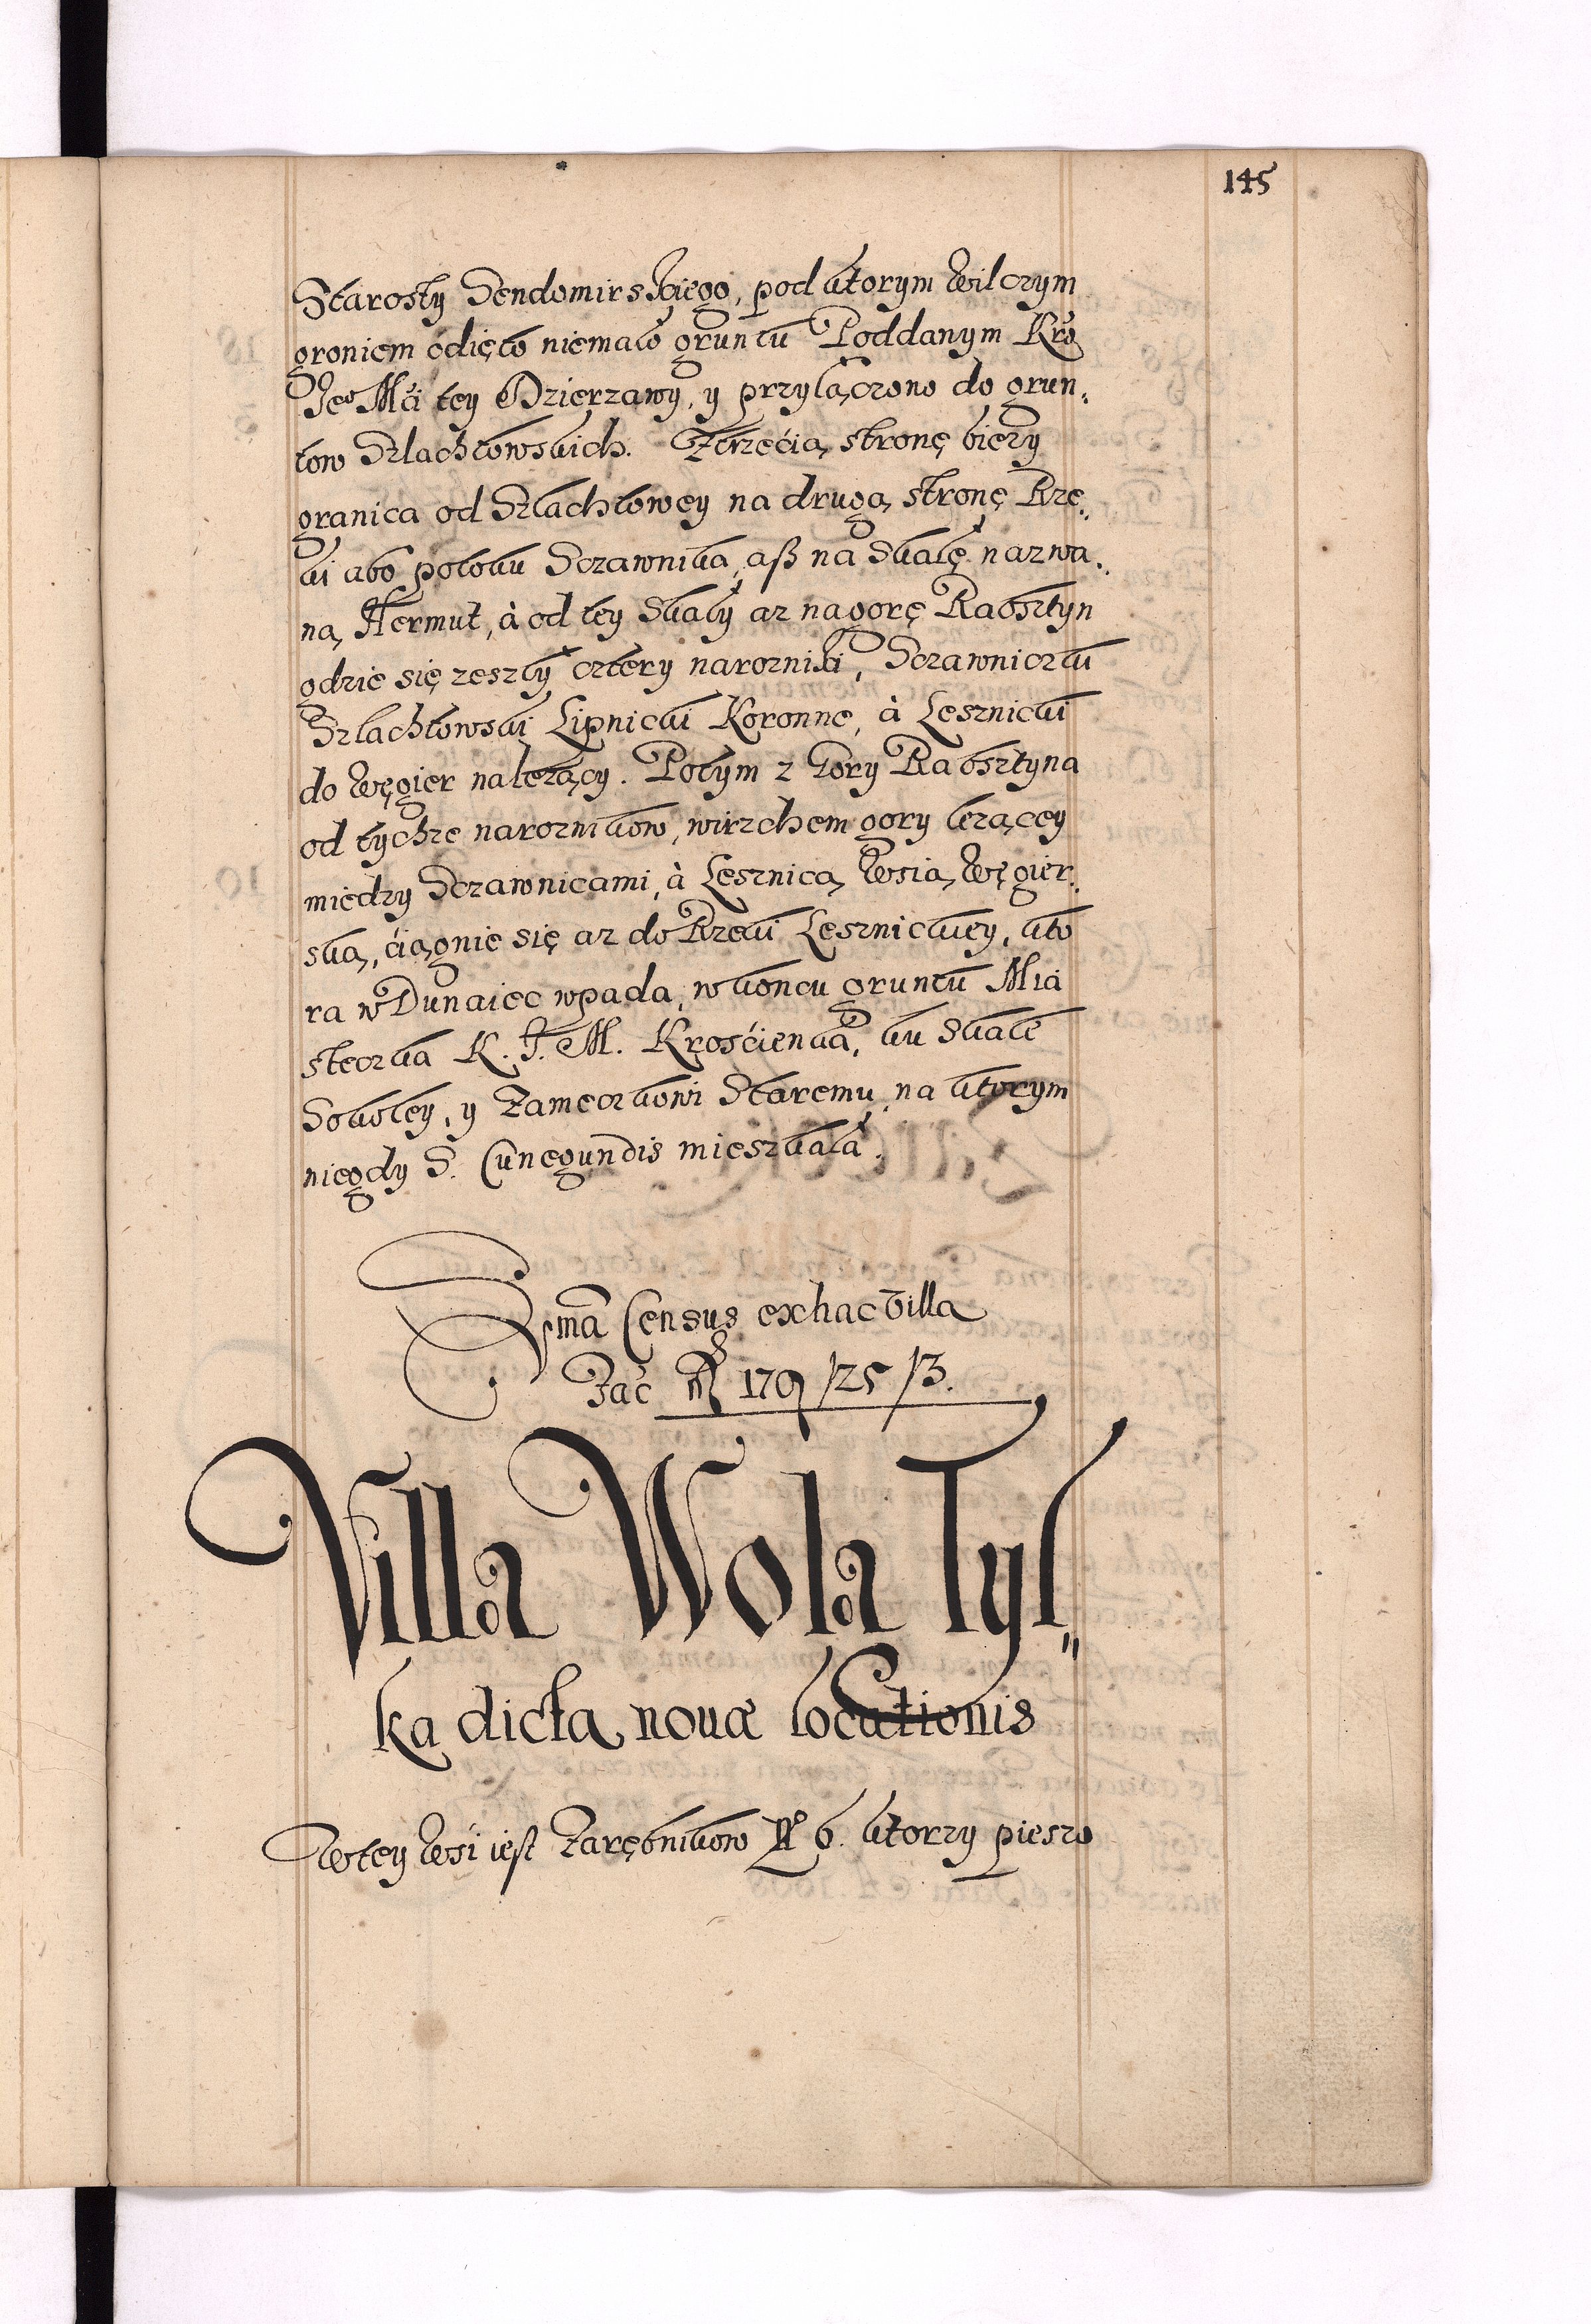 145
Starosty Sendomirskiego, pod ktorym Wilczym
groniem odięto niemało gruntu Poddanym Kro
Jeo Mći tey Dzierzawy, y przyłączono do grun,
tow Szlachtowskich. Ztrzecią stronę bieży
granica od Szlachtowey na drugą stronę Rze,
ki abo potoku Sczawnika, aß na Skałę nazwa,
ną Hermut, à od tey Skały az nagorę Rabsztyn
gdzie się zeszły cztery narozniki, Sczawniczki
Szlachtowski Lipnicki Koronne, à Lesznicki
do Węgier należący. Potym z Gory Rabsztyna
od tychze naroznikow, wirzchem gory lezącey
miedzy Sczawnicami, à Lesznicą Wsią Węgier,
ską, ciągnie się az do Rzeki Lesznickiey, kto
ra w Dunaiec wpada, w koncu gruntu Mia
steczka K. J. M. Krościenka, ku Skale
Sokoley, y Zameczkowi Staremu, na ktorym
niegdy S. Cunegundis mieszkała.
Suma Census exhac Villa
Fac 179/25/3.
Villa Wola Tyl,,
ka dicta nouæ locationis
Wtey Wsi iest Zarębnikow No 6. ktorzy pieszo